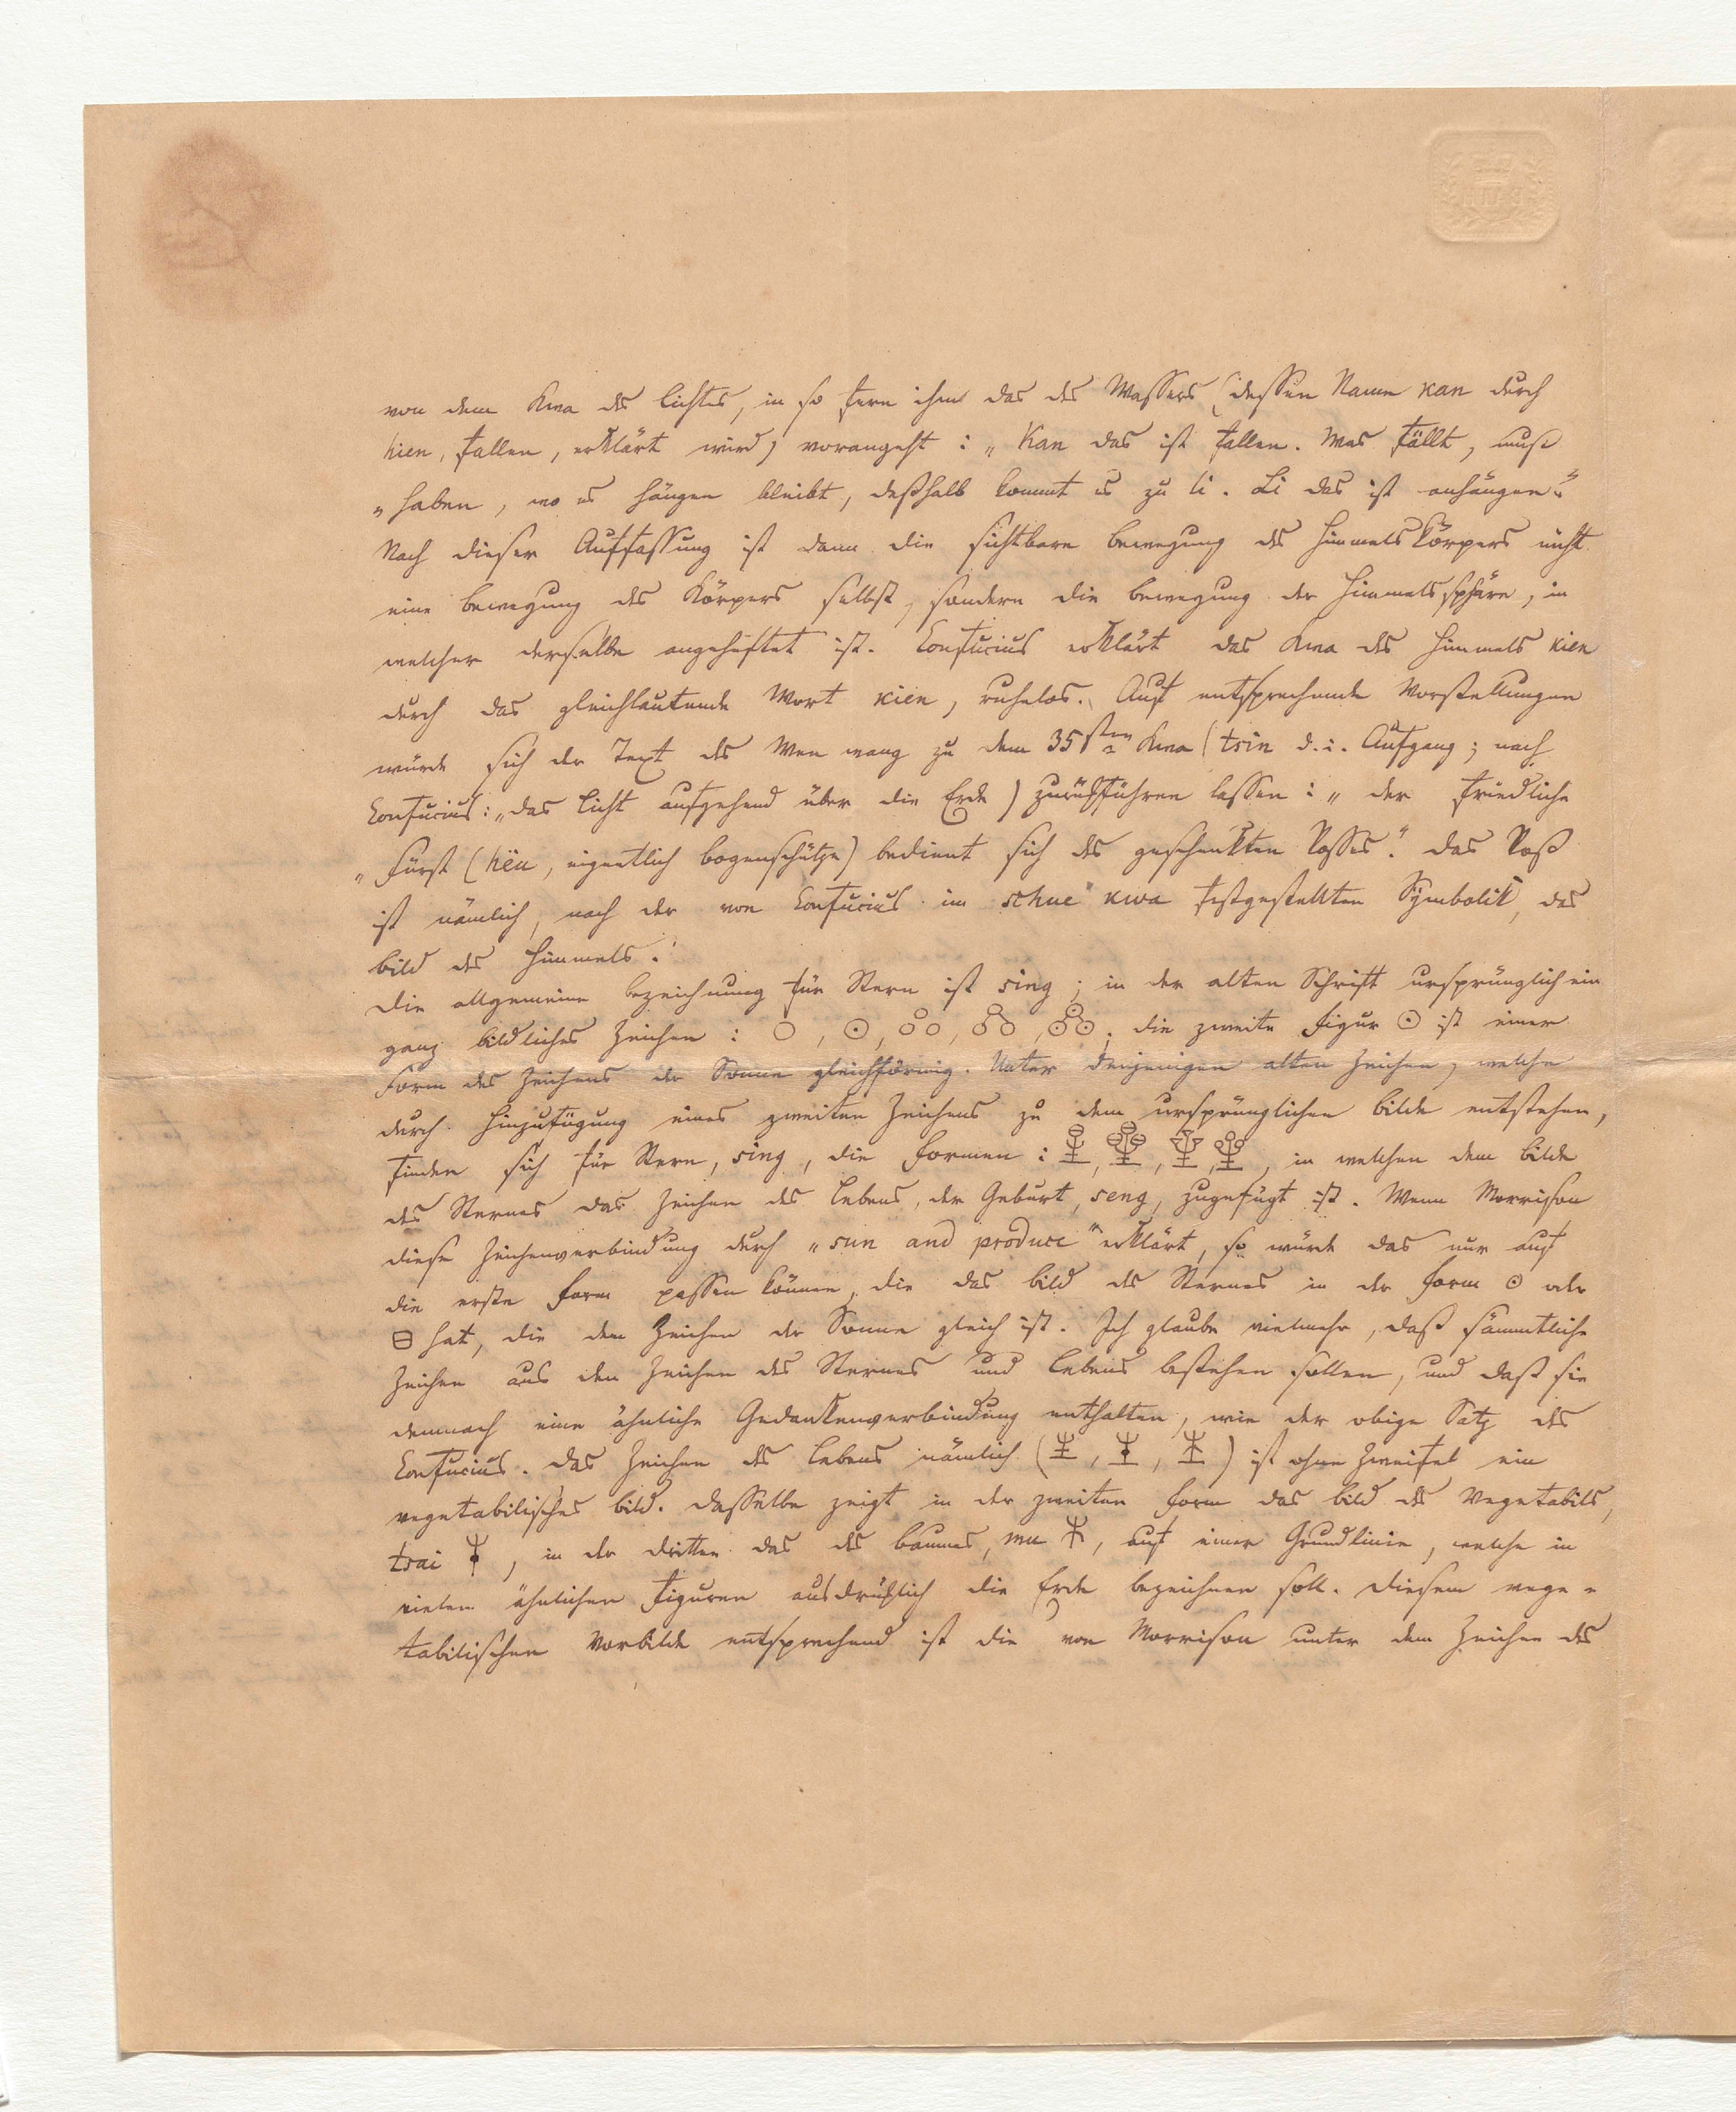 von dem Kwa des Lichtes, in so fern ihm das des Wassers (dessen Name kan durch
hien, fallen, erklärt wird) vorangeht : „Kan das ist fallen. Was fällt, muß
„haben, wo es hängen bleibt, deßhalb kommt es zu li. Li das ist anhängen.“
Nach dieser Auffassung ist dann die sichtbare Bewegung des Himmelskörpers nicht
eine Bewegung des Körpers selbst, sondern die Bewegung der Himmelssphäre, in
welcher derselbe angeheftet ist. Confucius erklärt das Kwa des Himmels kien
durch das gleichlautende Wort kien, ruhelos. Auf entsprechende Vorstellungen
würde sich der Text des Wen wang zu dem 35sten Kwa (tsin d.i. Aufgang; nach
Confucius: „das Licht aufgehend über die Erde) zurückführen lassen : „der friedliche
„Fürst (hëu, eigentlich Bogenschütze) bedient sich des geschenkten Rosses.“ Das Roß
ist nämlich, nach der von Confucius im schue kwa festgestellten Symbolik, das
Bild des Himmels.
Die allgemeine Bezeichnung für Stern ist sing; in der alten Schrift ursprünglich ein
ganz bildliches Zeichen : ○, ⊙, die zweite Figur ⊙ ist einer
Form des Zeichens der Sonne gleichförmig. Unter denjenigen alten Zeichen, welche
durch Hinzufügung eines zweiten Zeichens zu dem ursprünglichen Bilde entstehen,
finden sich für Stern, sing, die Formen : , in welchen dem Bilde
des Sternes das Zeichen des Lebens, der Geburt, seng, zugefügt ist. Wenn Morrison
diese Zeichenverbindung durch „sun and produce“ erklärt, so würde das nur auf
die erste Form passen können, die das Bild des Sternes in der Form ⊙ oder
⊖ hat, die dem Zeichen der Sonne gleich ist. Ich glaube vielmehr, daß sämmtliche
Zeichen aus den Zeichen des Sternes und Lebens bestehen sollen, und daß sie
demnach eine ähnliche Gedankenverbindung enthalten, wie der obige Satz des
Confucius. Das Zeichen des Lebens nämlich ( , , ) ist ohne Zweifel ein
vegetabilisches Bild. Dasselbe zeigt in der zweiten Form das Bild des Vegetabils,
tsai , in der dritten das des Baumes, mu , auf einer Grundlinie, welche in
vielen ähnlichen Figuren ausdrücklich die Erde bezeichnen soll. Diesem vege=
tabilischen Vorbilde entsprechend ist die von Morrison unter dem Zeichen des